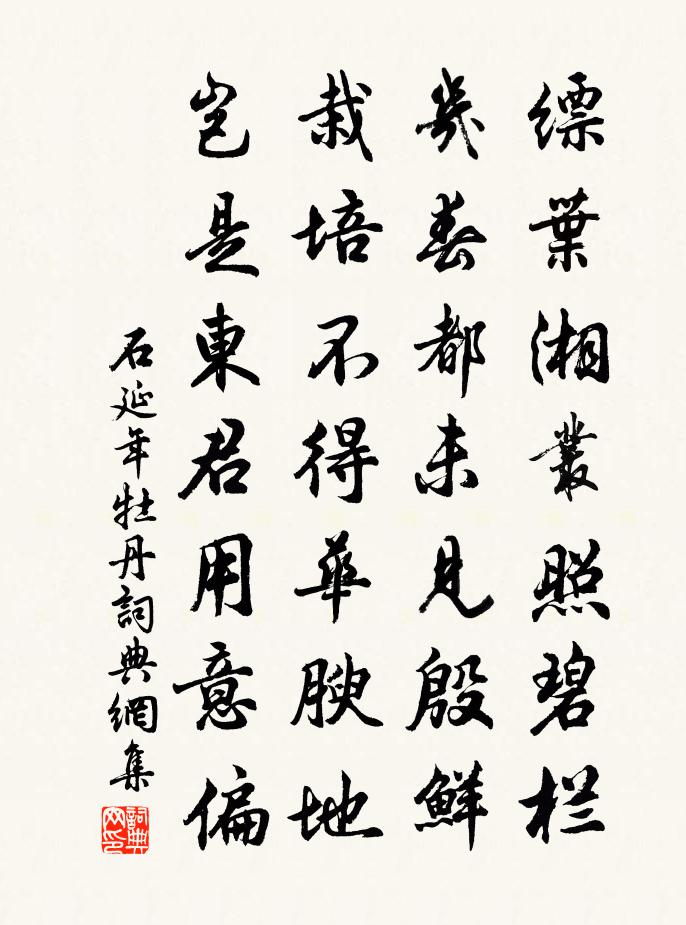 缥葉湘叢照碧栏
幾春都未見殷鮮
栽培不得華腴地
豈是東君用意偏
石延年牡丹詞典網集
詞典网印